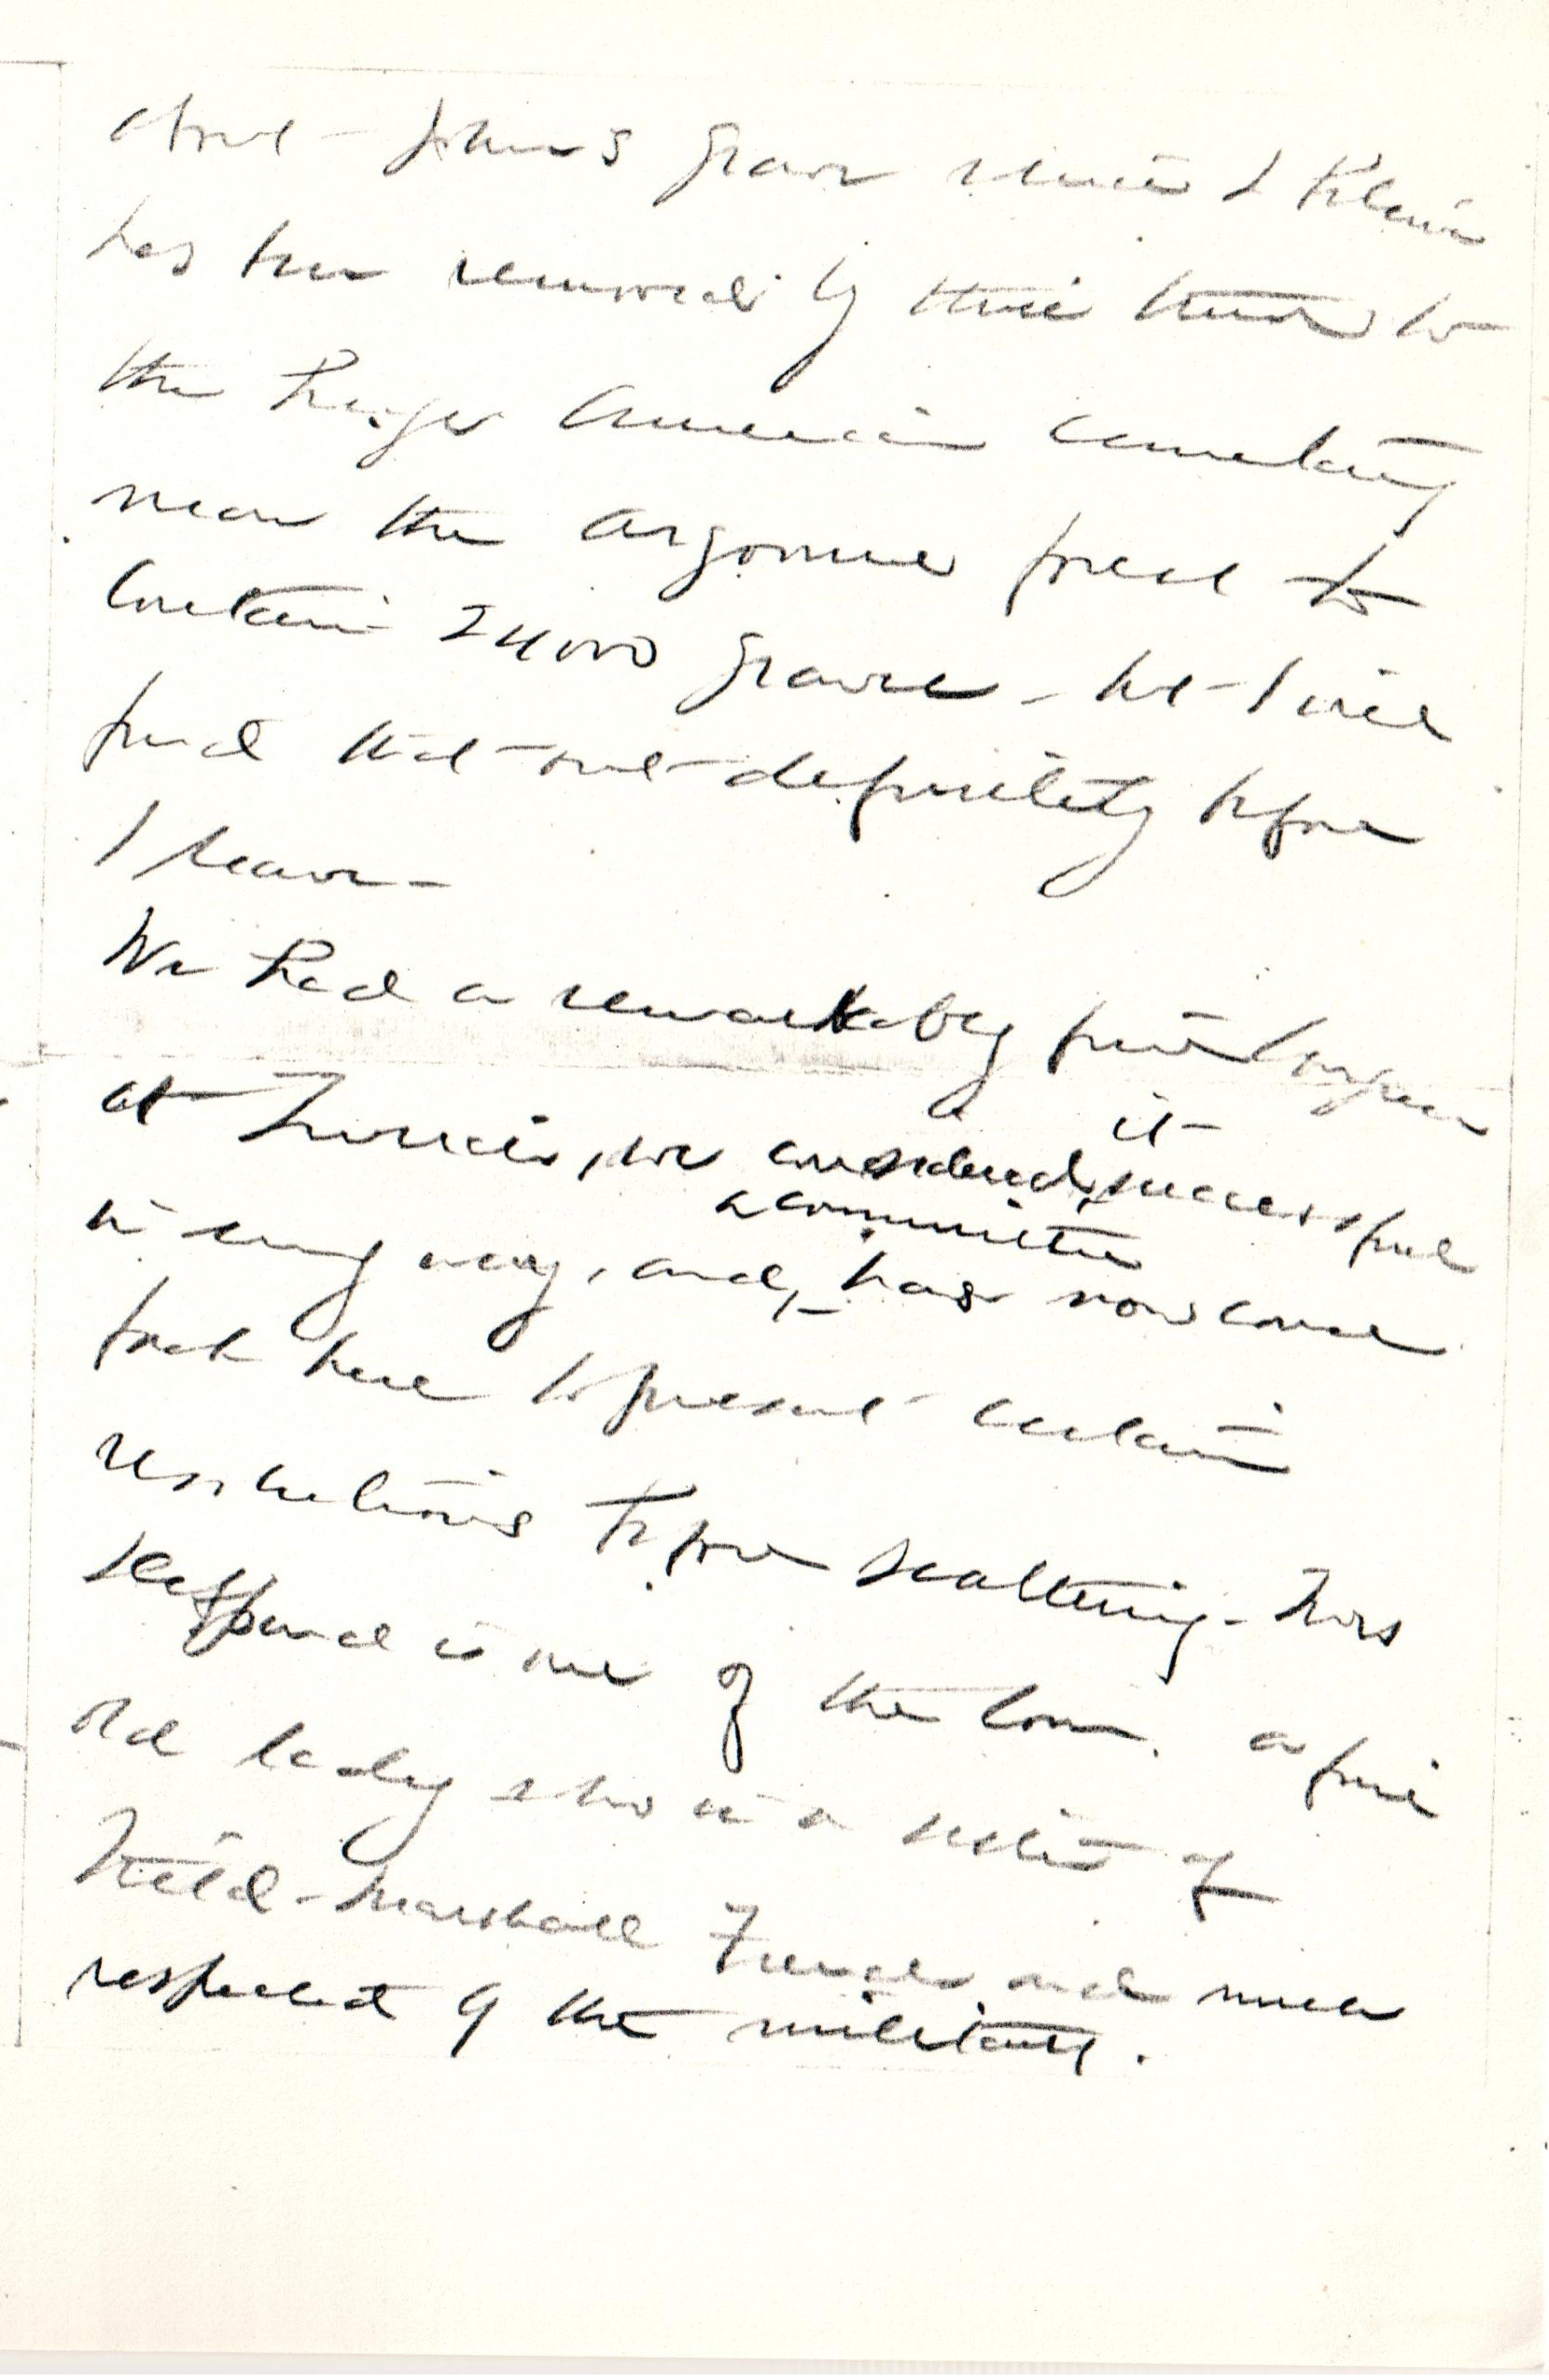 about John's grave which I think
has been removed by this time to
the huge American cemetery
near the Argonne forest to
contain 24000 graves - but I will
find that out definitely before
I leave -
We had a remarkably fine Congress
at Zurich, we considered it successful
in every way, and, a committee has now come
back here to present certain
resolutions before scattering - Mrs
Despard is one of the Com. a fine
old lady who is a sister of
Field-Marshall French and much
respected by the militants.